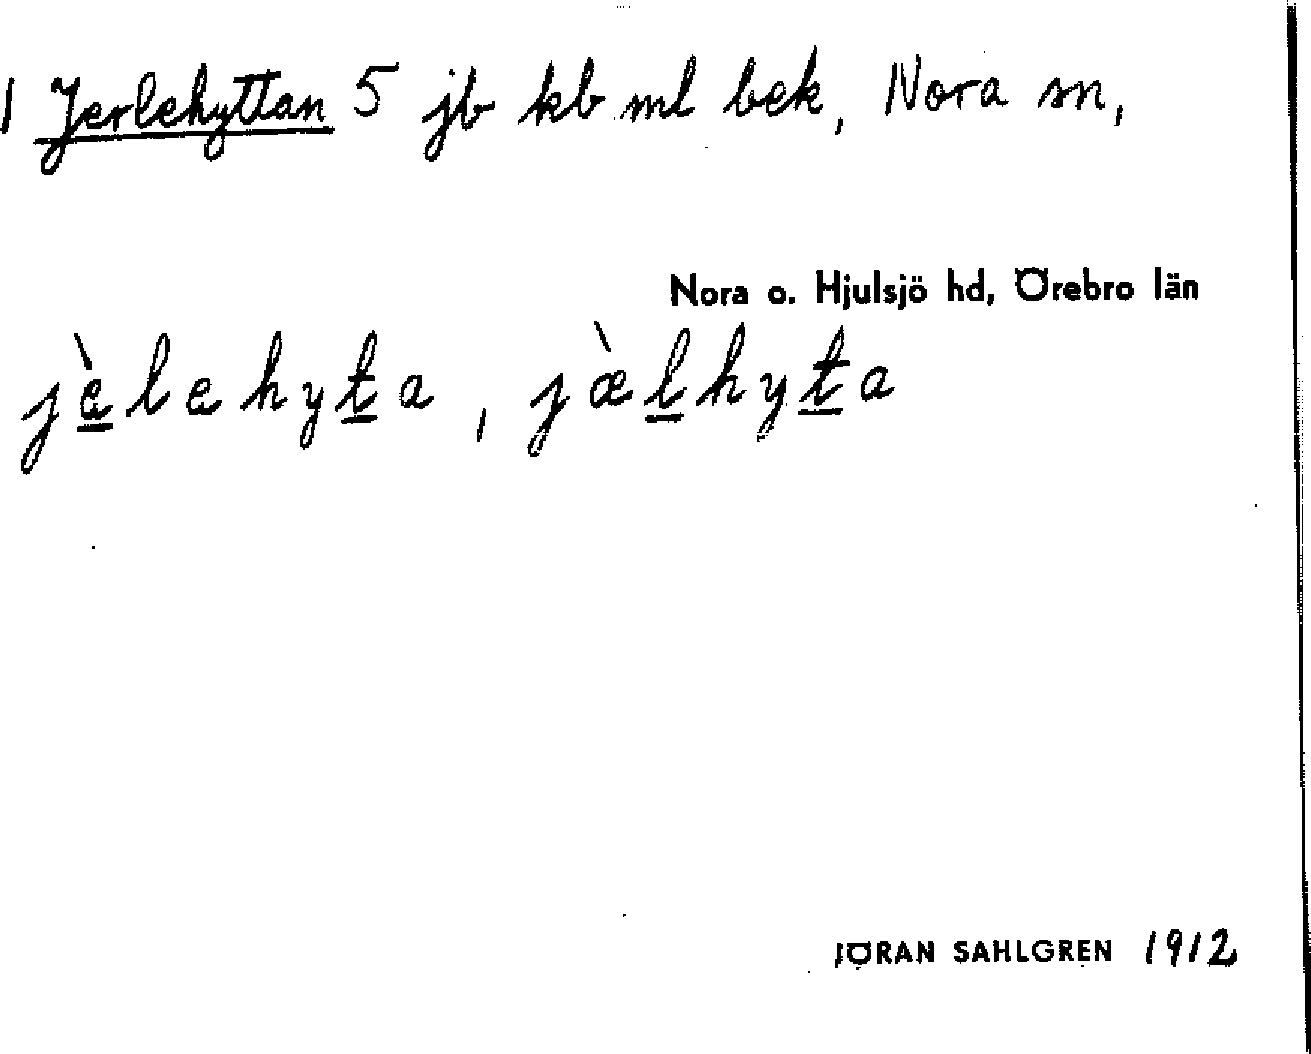 1 Jerlehyttan 5 jb kb ml bek, Nora sn,
Nora o. Hjulsjö hd, Örebro län
jè̲lehyt̲a, jæ̀l̲hyt̲a
JÖRAN SAHLGREN 1912